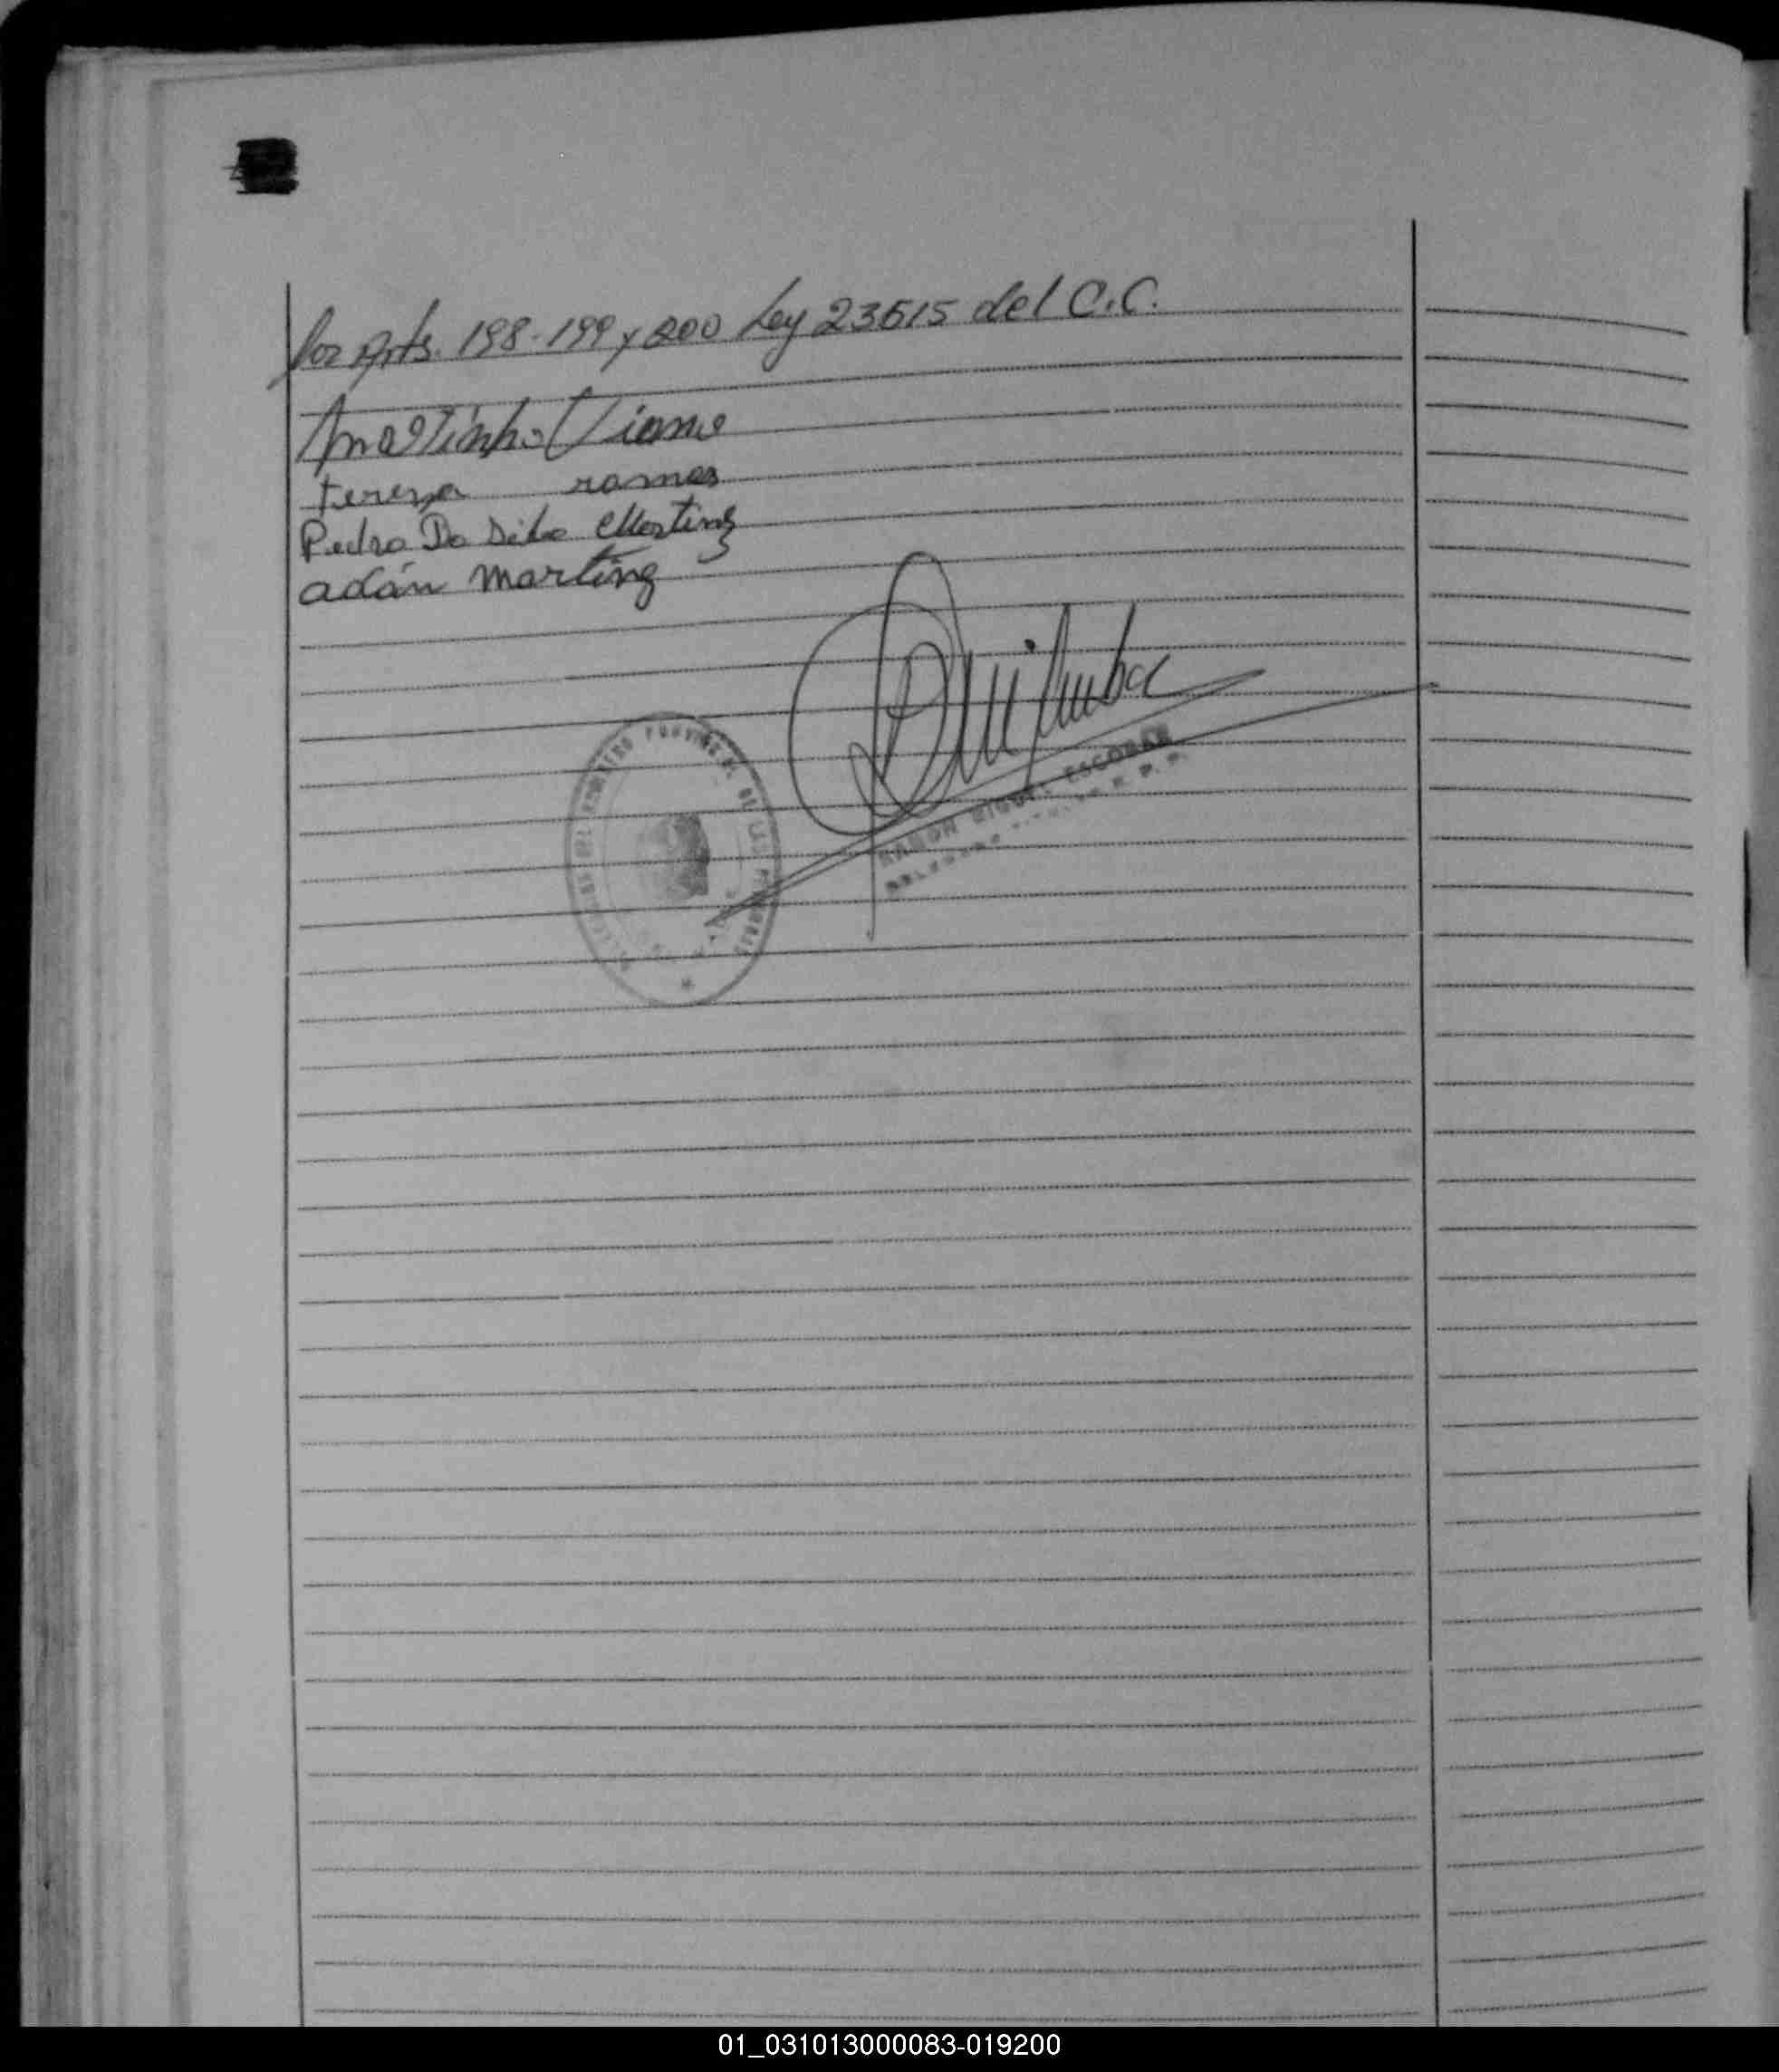 los Arts. 198-199 y 200 Ley 23515 del C.C.
Martinho Viana
tereza ramos
Pedro Da Silva Martinz
adán Martinz
REGISTRO PROVINCIAL DE LAS PERSONAS
RAMON MIGUEL ESCOBAR
DELEGADO TITULAR R. P. P.
01_031013000083-019200